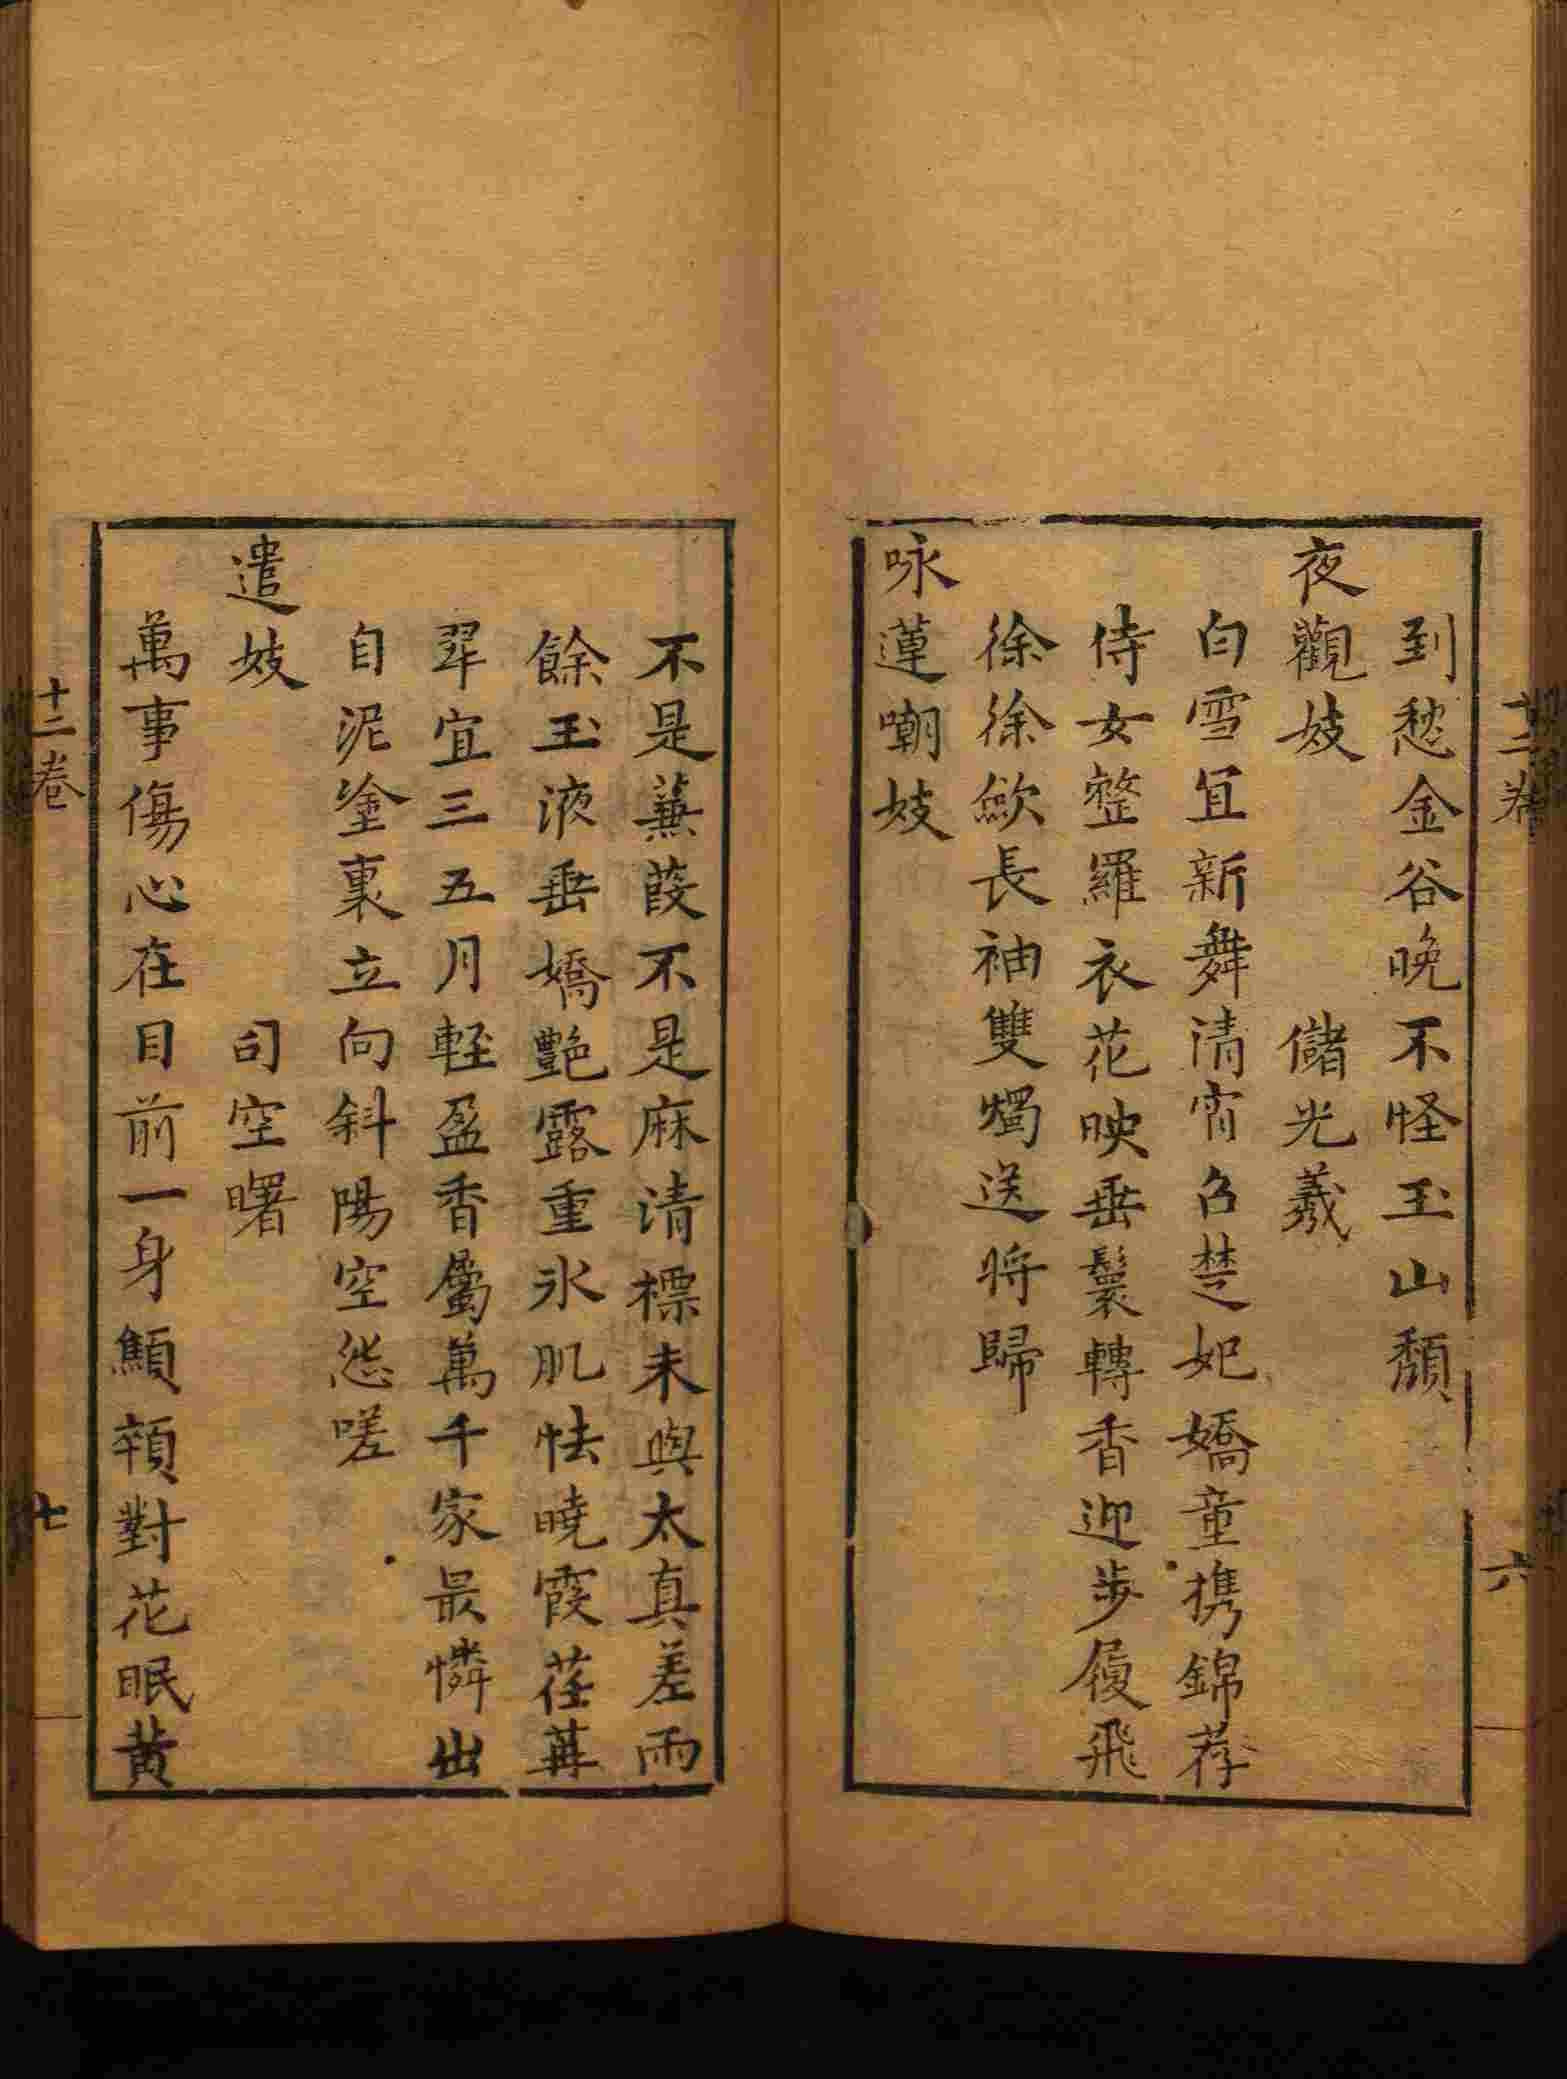 到愁金谷晚不怪玉山頹
夜觀妓 儲光羲
白雪宜新舞清宵召楚妃嬌童携錦荐
侍女整羅衣花映垂鬟轉香迎步履飛
徐徐歛長袖雙燭送將歸
咏蓮嘲妓
十二卷 六
不是蒹葭不是麻清標未與太真差雨
餘玉液垂嬌艶露重氷肌怯曉霞荏苒
翠宜三五月輕盈香屬萬千家最憐出
自泥塗裏立向斜陽空怨嗟
遣妓 司空曙
萬事傷心在目前一身顦顇對花眠黄
十二卷 七